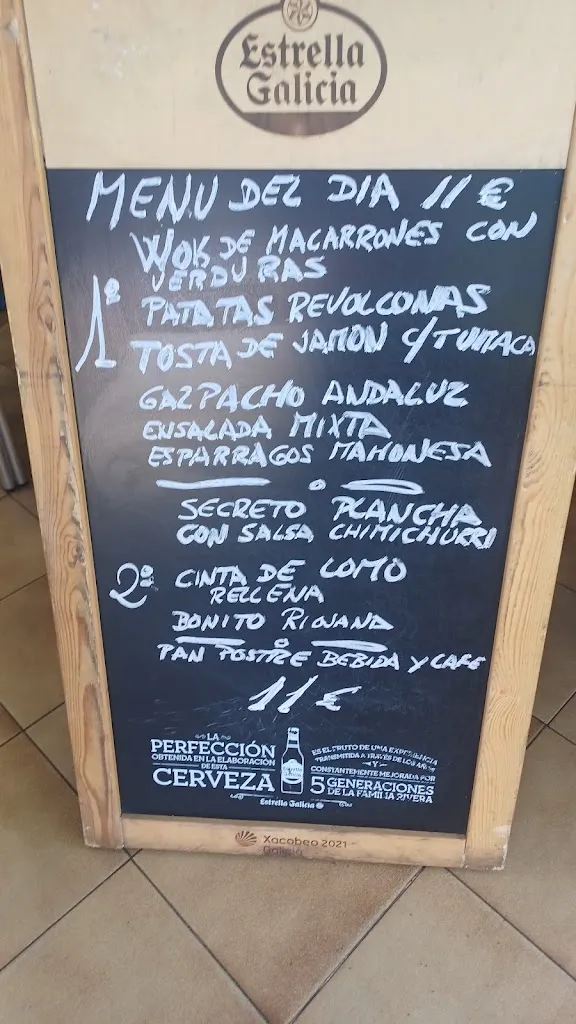 Estrella
Galicia
MENU DEL DIA 11 €
WOK DE MACARRONES CON
VERDURAS
1º
PATATAS REVOLCONAS
TOSTA DE JAMON C/TUMACA
GAZPACHO ANDALUZ
ENSALADA MIXTA
ESPARRAGOS MAHONESA
SECRETO PLANCHA
CON SALSA CHIMICHURRI
2º
CINTA DE LOMO
RELLENA
BONITO RIOJANA
PAN POSTRE BEBIDA Y CAFE
11 €
LA
PERFECCIÓN
OBTENIDA EN LA ELABORACIÓN
DE ESTA
CERVEZA
ES EL FRUTO DE UNA EXPERIENCIA
TRANSMITIDA A TRAVÉS DE LOS AÑOS
Y
CONSTANTEMENTE MEJORADA POR
5 GENERACIONES
DE LA FAMILIA RIVERA
Estrella Galicia
Xacobeo 2021
Galicia